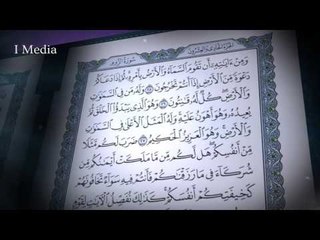 I Media
الجزء الحادي والعشرون
سورة الروم
وَمِنْ ءَايَٰتِهِۦٓ أَن تَقُومَ ٱلسَّمَآءُ وَٱلْأَرْضُ بِأَمْرِهِۦ ثُمَّ إِذَا دَعَاكُمْ
دَعْوَةً مِّنَ ٱلْأَرْضِ إِذَآ أَنتُمْ تَخْرُجُونَ ٢٥ وَلَهُۥ مَن فِى ٱلسَّمَٰوَٰتِ
وَٱلْأَرْضِ كُلٌّ لَّهُۥ قَٰنِتُونَ ٢٦ وَهُوَ ٱلَّذِى يَبْدَؤُا۟ ٱلْخَلْقَ ثُمَّ
يُعِيدُهُۥ وَهُوَ أَهْوَنُ عَلَيْهِ وَلَهُ ٱلْمَثَلُ ٱلْأَعْلَىٰ فِى ٱلسَّمَٰوَٰتِ
وَٱلْأَرْضِ وَهُوَ ٱلْعَزِيزُ ٱلْحَكِيمُ ٢٧ ضَرَبَ لَكُم مَّثَلًا
مِّنْ أَنفُسِكُمْ هَل لَّكُم مِّن مَّا مَلَكَتْ أَيْمَٰنُكُم مِّن
شُرَكَآءَ فِى مَا رَزَقْنَٰكُمْ فَأَنتُمْ فِيهِ سَوَآءٌ تَخَافُونَهُمْ
كَخِيفَتِكُمْ أَنفُسَكُمْ كَذَٰلِكَ نُفَصِّلُ ٱلْءَايَٰتِ لِقَوْمٍ